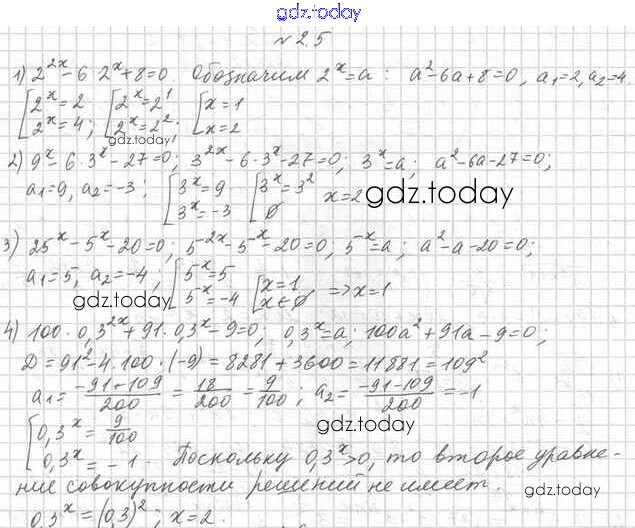 gdz.today
№ 2.5
1) 2^{2x} - 6 · 2^x + 8 = 0. Обозначим 2^x = a : a² - 6a + 8 = 0, a₁ = 2, a₂ = 4.
[2^x = 2 [2^x = 2^1 [x = 1
2^x = 4; 2^x = 2²; x = 2
gdz.today
2) 9^x - 6 · 3^x - 27 = 0; 3^{2x} - 6 · 3^x - 27 = 0; 3^x = a; a² - 6a - 27 = 0;
a₁ = 9, a₂ = -3; [3^x = 9 [3^x = 3² x = 2 gdz.today
3^x = -3 ∅
3) 25^{-x} - 5^{-x} - 20 = 0; 5^{-2x} - 5^{-x} - 20 = 0; 5^{-x} = a; a² - a - 20 = 0;
a₁ = 5, a₂ = -4; [5^{-x} = 5 [x = 1 => x = 1
gdz.today 5^{-x} = -4 x ∈ ∅
4) 100 · 0,3^{2x} + 91 · 0,3^x - 9 = 0; 0,3^x = a; 100a² + 91a - 9 = 0;
D = 91² - 4 · 100 · (-9) = 8281 + 3600 = 11881 = 109²
a₁ = (-91+109)/200 = 18/200 = 9/100; a₂ = (-91-109)/200 = -1
gdz.today
[0,3^x = 9/100
0,3^x = -1. Поскольку 0,3^x > 0, то второе уравне-
ние совокупности решений не имеет.
gdz.today
0,3^x = (0,3)²; x = 2.